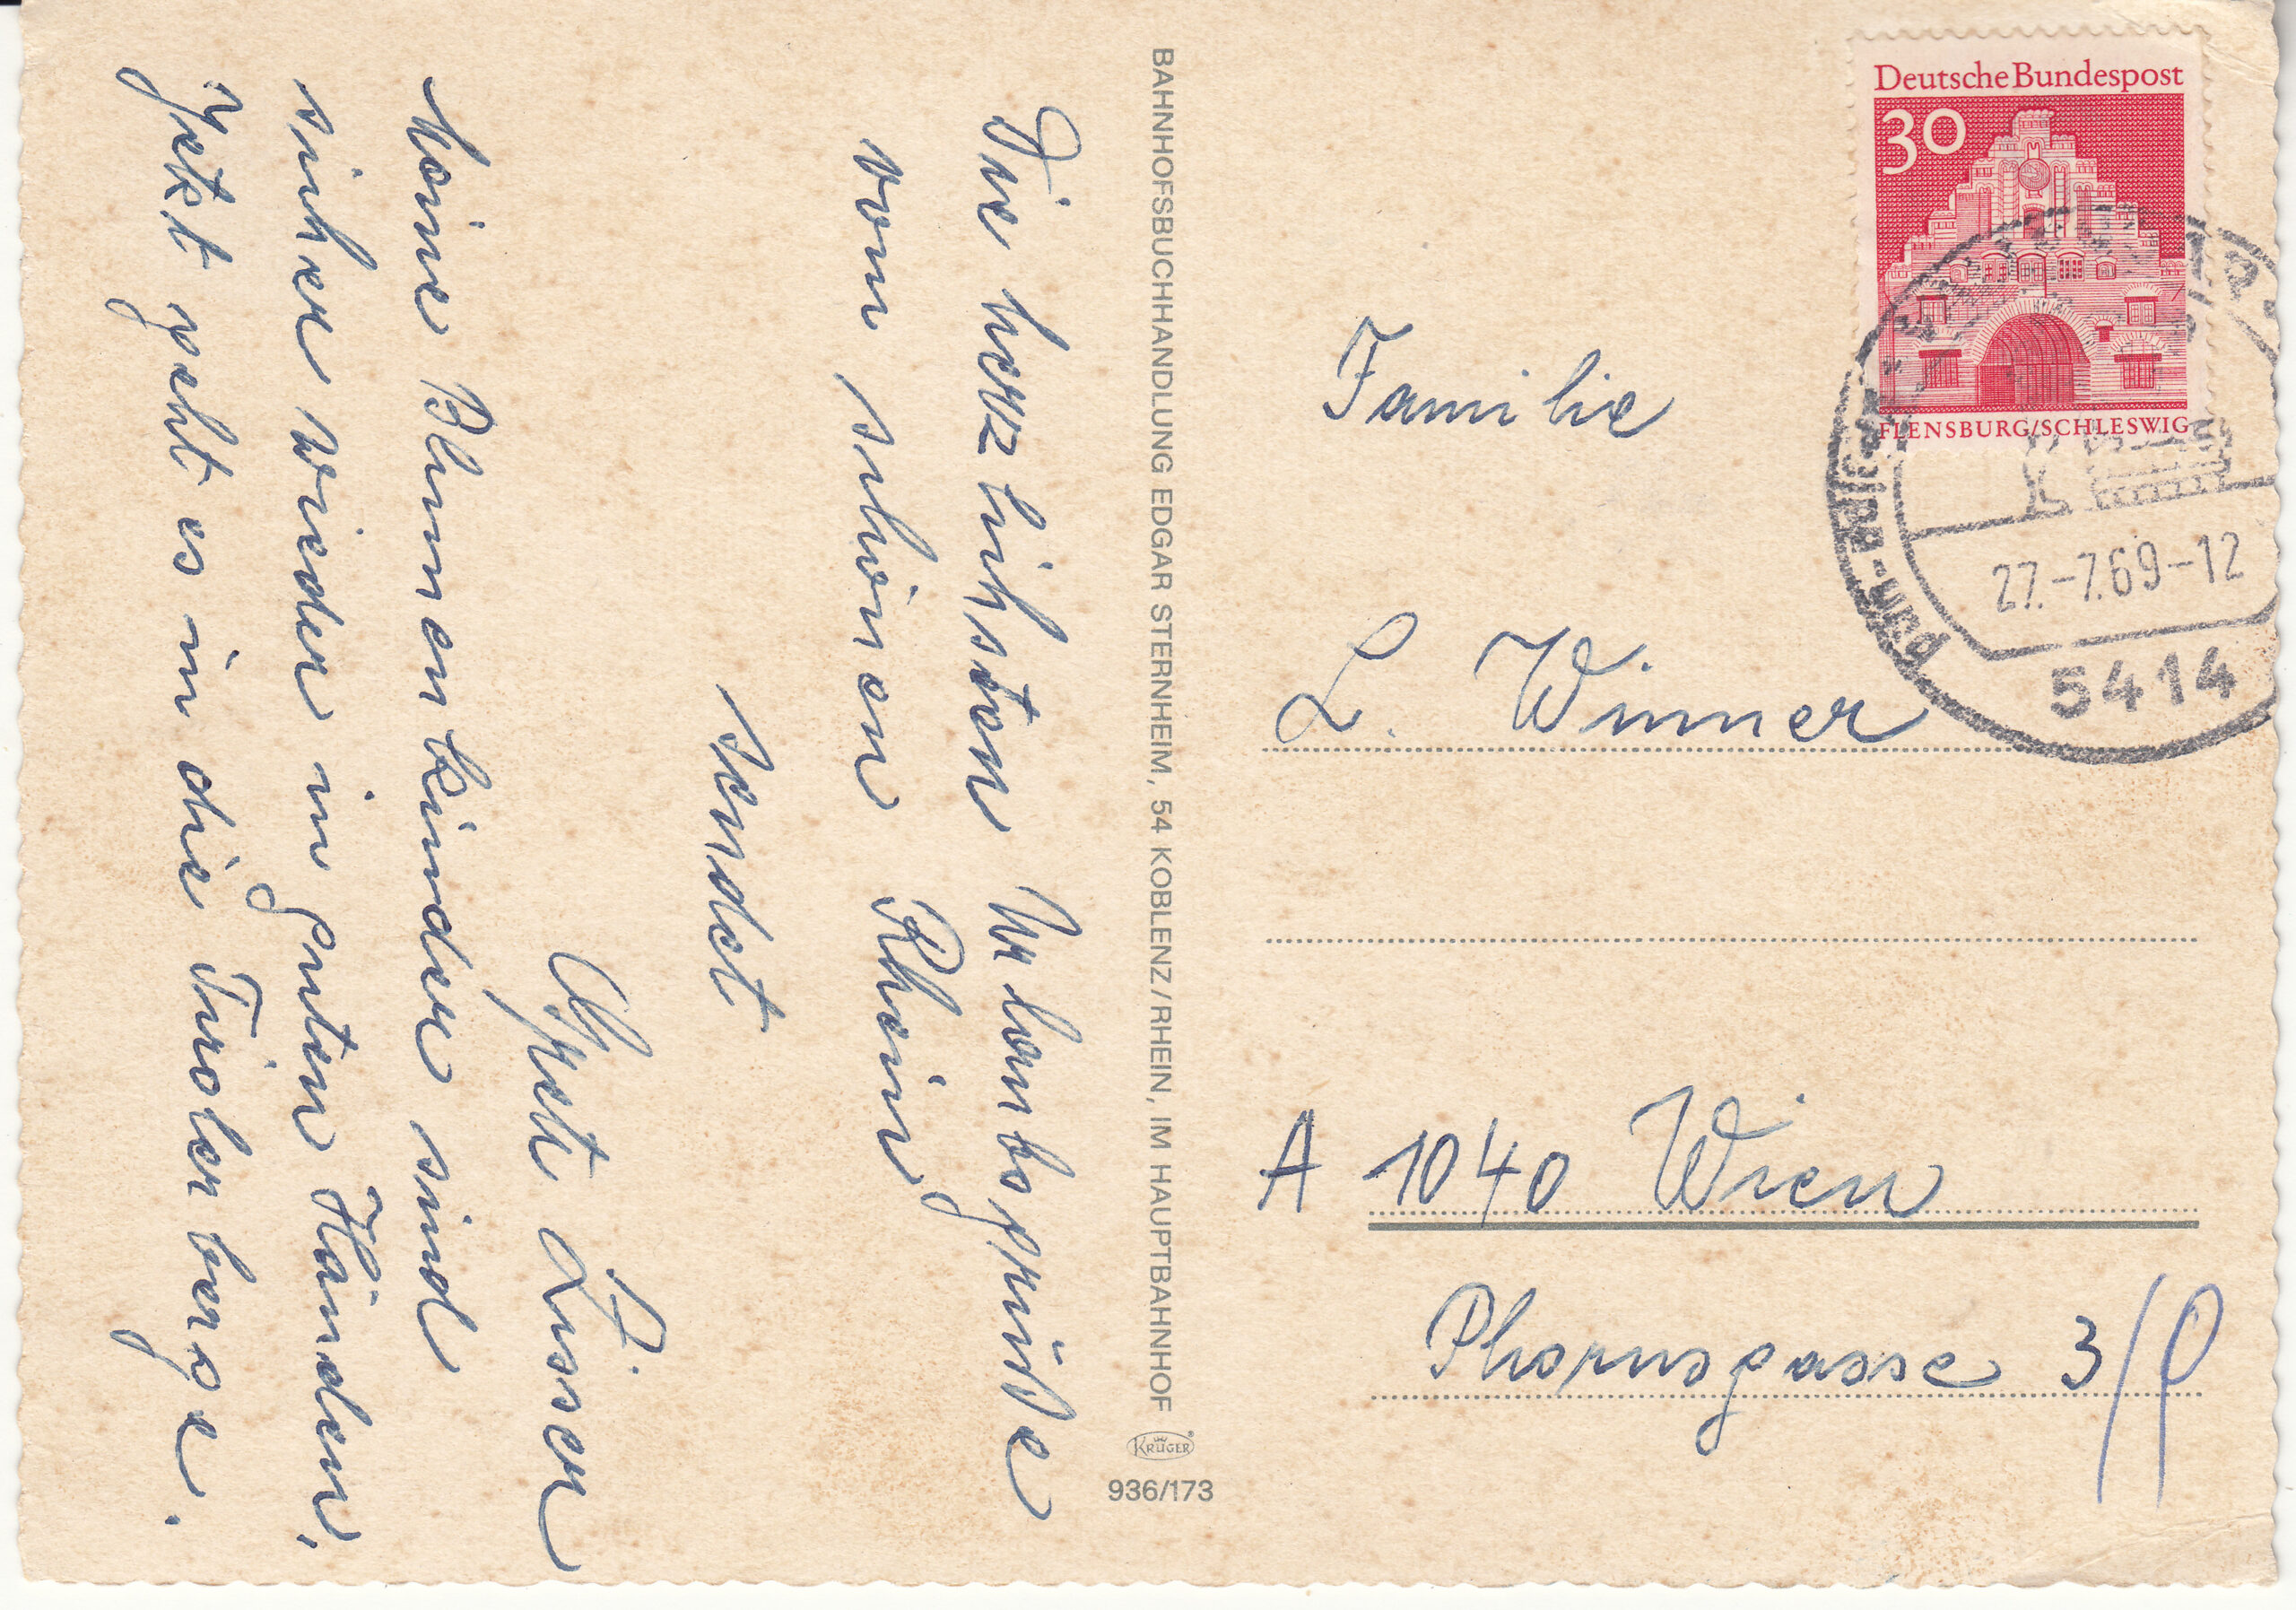 Die herzlichsten Urlaubsgrüße
vom schönen Rhein
sendet
Meine Blumenkinder sind
sicher wieder in guten Händen.
Jetzt geht es in die Tirolerberge.
BAHNHOFSBUCHHANDLUNG EDGAR STERNHEIM, 54 KOBLENZ/RHEIN, IM HAUPTBAHNHOF
KRÜGER
936/173
Deutsche Bundespost
30
FLENSBURG/SCHLESWIG
27.-7.69-12
5414
Familie
L. Winner
A 1040 Wien
Phorusgasse 3/